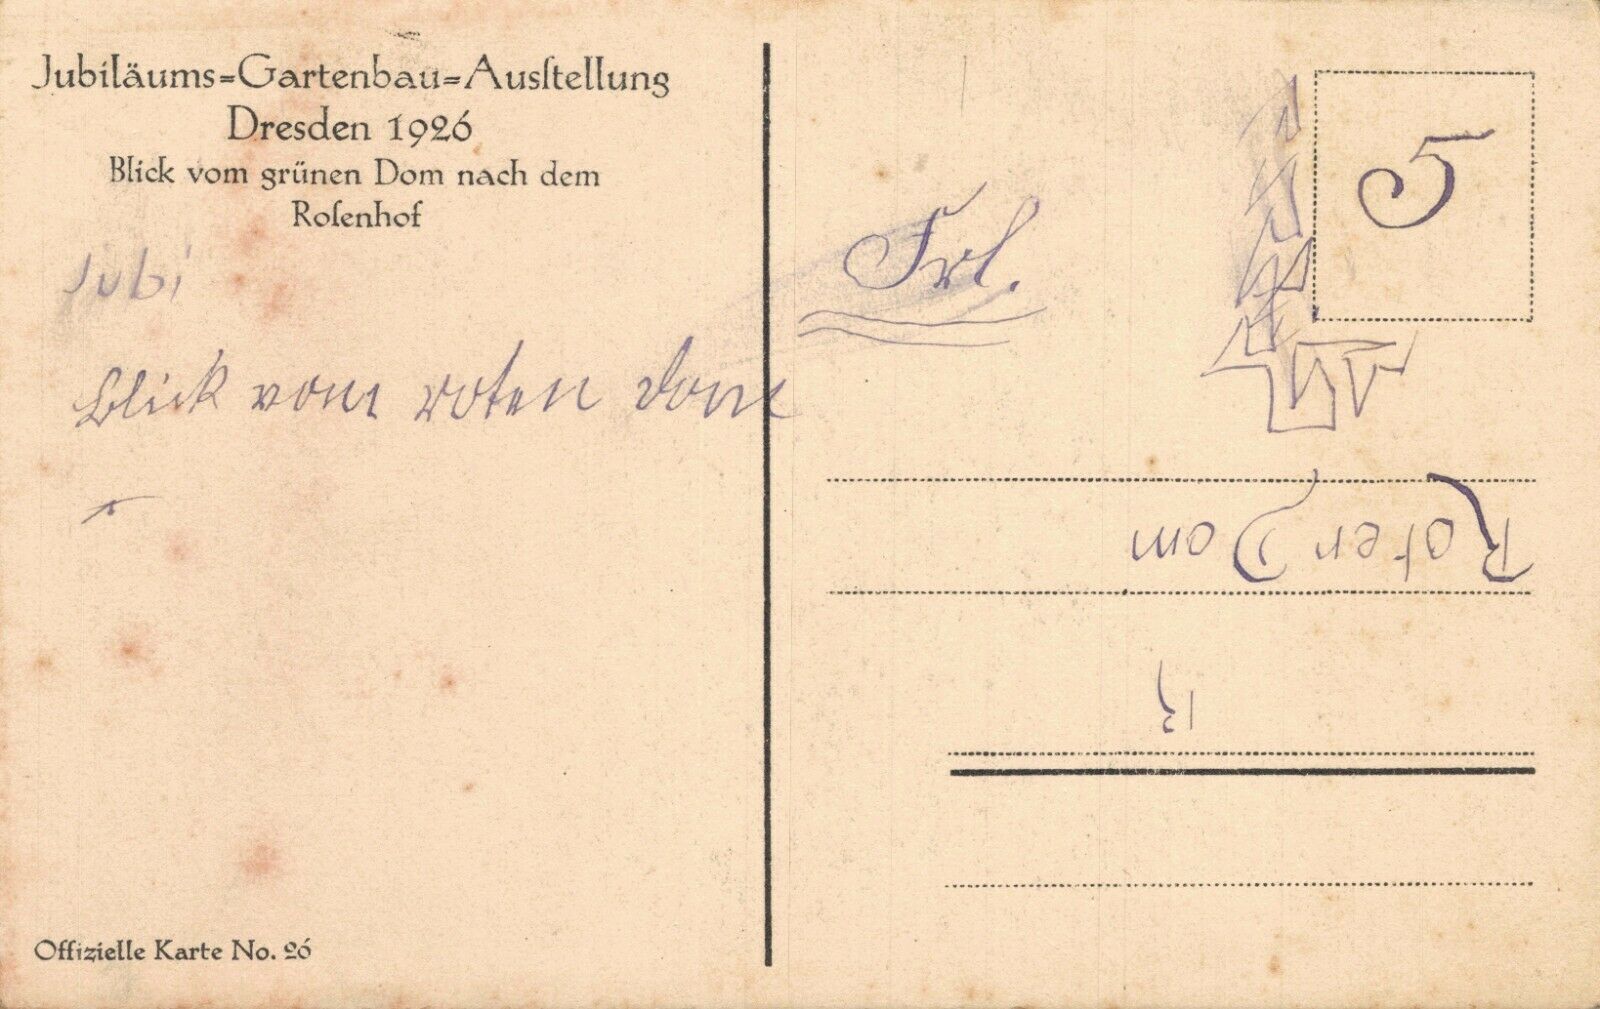 Jubiläums=Gartenbau=Ausſtellung
Dresden 1926
Blick vom grünen Dom nach dem
Roſenhof
Jubi
Blick vom roten Dom
Offizielle Karte No. 26
5
Frl.
Roter Dom
R